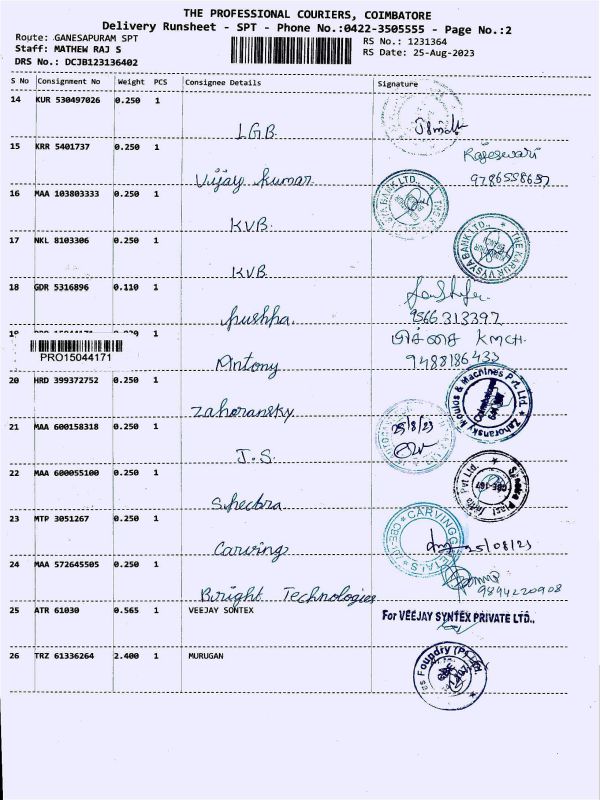 THE PROFESSIONAL COURIERS, COIMBATORE
Delivery Runsheet - SPT - Phone No.:0422-3505555 - Page No.:2
Route: GANESAPURAM SPT
Staff: MATHEW RAJ S
DRS No.: DCJB123136402
RS No.: 1231364
RS Date: 25-Aug-2023
S No Consignment No Weight PCS Consignee Details Signature
14 KUR 530497026 0.250 1
LGB
15 KRR 5401737 0.250 1
Rajeswari
Vijay kumar
9786558657
16 MAA 103803333 0.250 1
KVB
17 NKL 8103306 0.250 1
THE KARUR VYSYA BANK LTD.,
KVB
18 GDR 5316896 0.110 1
pushpa
9566313397
19 1
KMCH
PRO15044171
Antony
9488186433
20 HRD 399372752 0.250 1
Zahoransky Moulds & Machines Pvt Ltd.
Zahoransky
21 MAA 600158318 0.250 1
25/8/23
J.S.
22 MAA 600055100 0.250 1
Spectra
23 MTP 3051267 0.250 1
CARVING
Carving
25/08/23
24 MAA 572645505 0.250 1
Bright Technologies
9894220908
25 ATR 61030 0.565 1 VEEJAY SONTEX
For VEEJAY SYNTEX PRIVATE LTD.,
26 TRZ 61336264 2.400 1 MURUGAN
Foundry (P) Ltd.